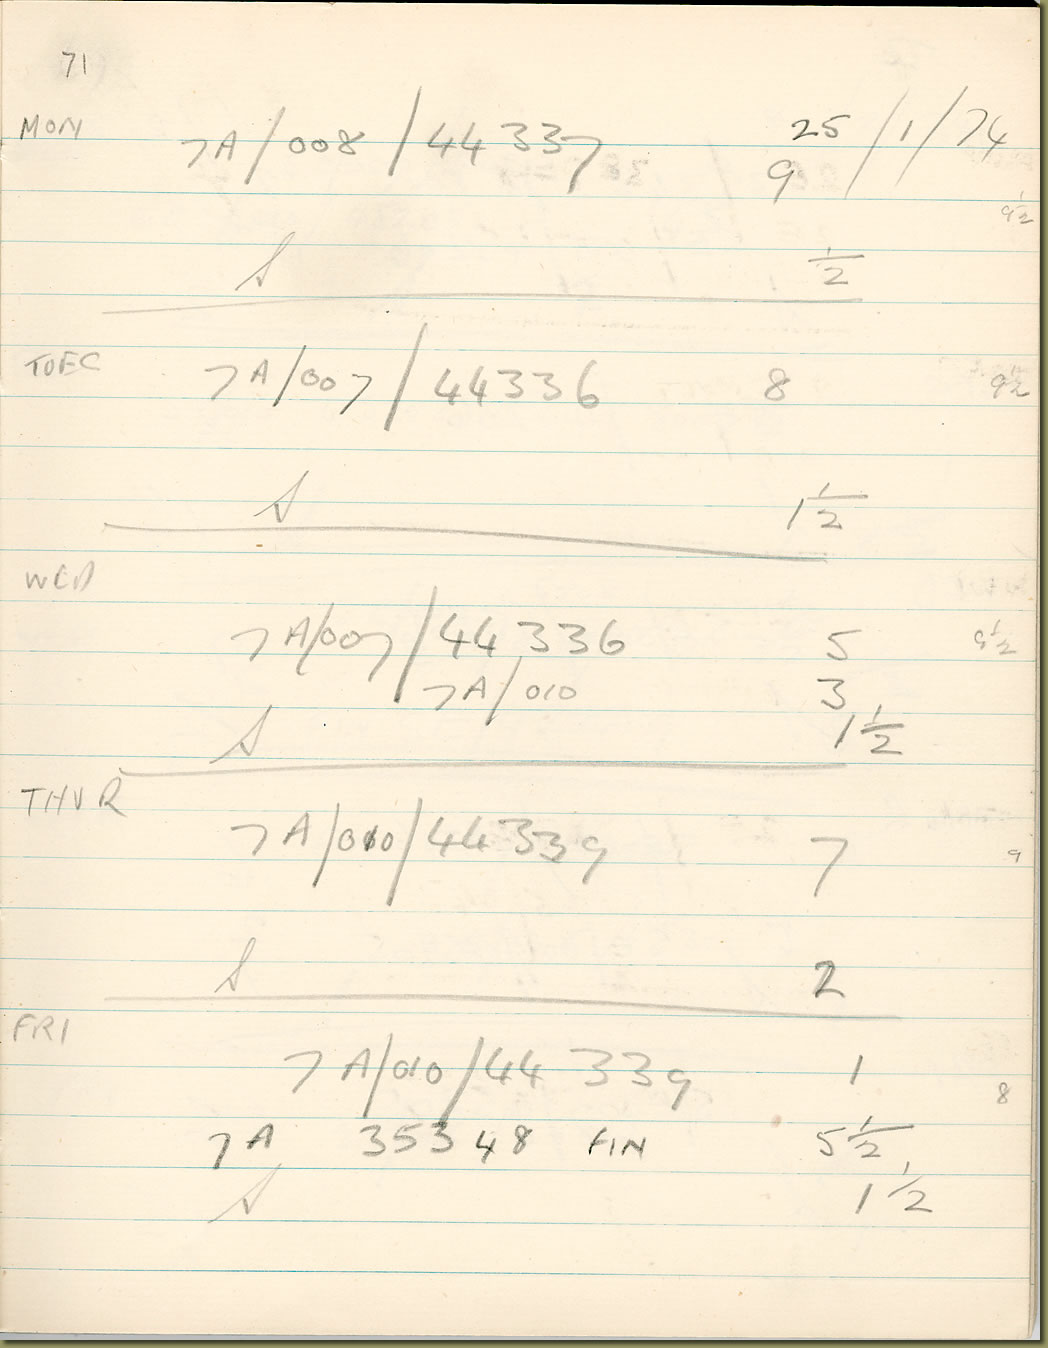 71
MON 7A/008/44337 25/1/74
9
9½
S ½
TUEC 7A/007/44336 8 9½
S 1½
WED
7A/007/44336 5 9½
7A/010 3
S 1½
THUR
7A/010/44339 7 9
S 2
FRI
7A/010/44 339 1
8
7A 35348 FIN 5½
S 1½